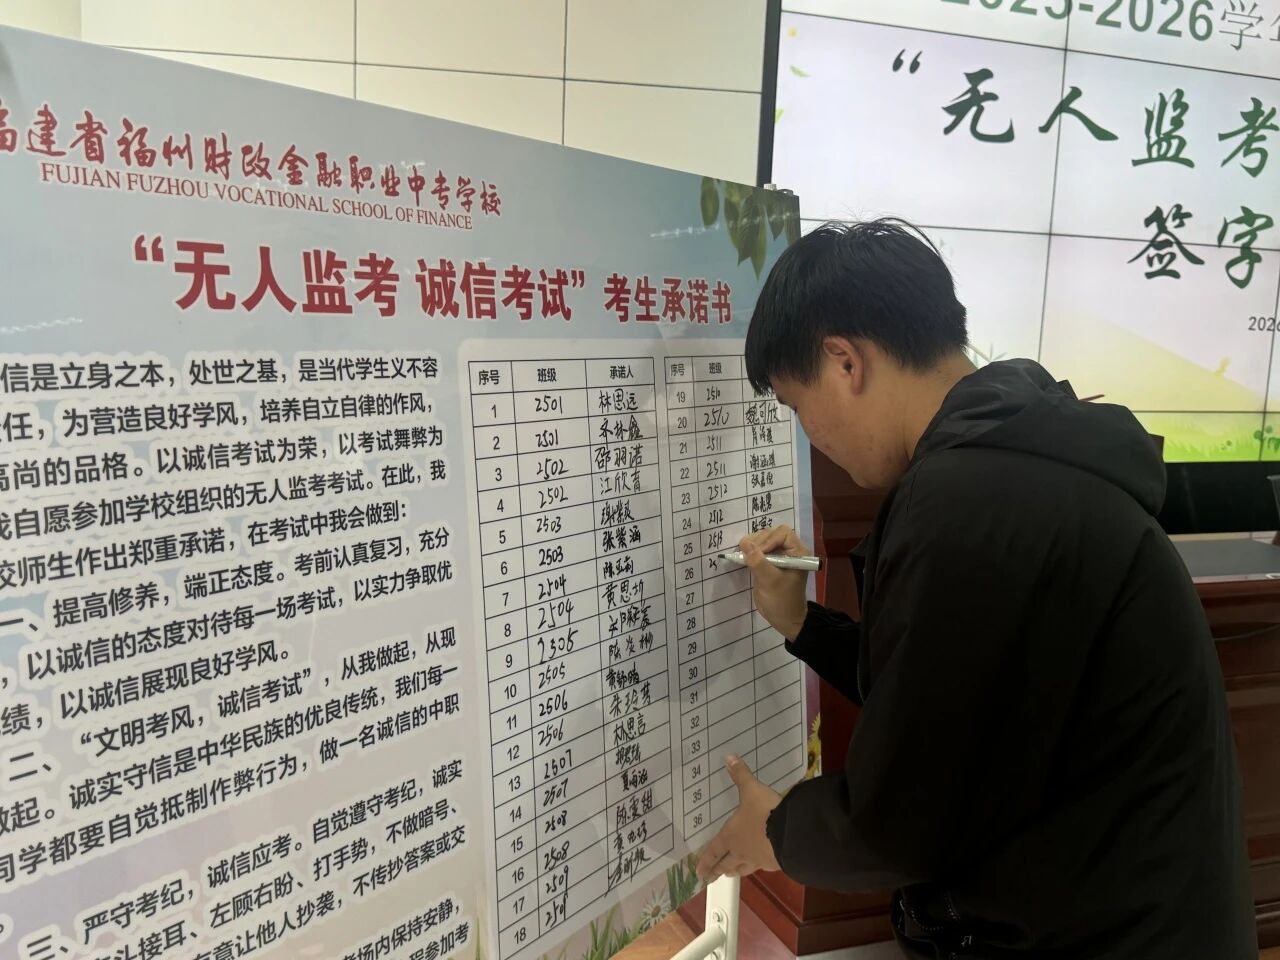 福建省福州财政金融职业中专学校
FUJIAN FUZHOU VOCATIONAL SCHOOL OF FINANCE
“无人监考 诚信考试”考生承诺书
信是立身之本，处世之基，是当代学生义不容
任，为营造良好学风，培养自立自律的作风，
高尚的品格。以诚信考试为荣，以考试舞弊为
我自愿参加学校组织的无人监考考试。在此，我
校师生作出郑重承诺，在考试中我会做到：
一、提高修养，端正态度。考前认真复习，充分
，以诚信的态度对待每一场考试，以实力争取优
绩，以诚信展现良好学风。
二、“文明考风，诚信考试”，从我做起，从现
做起。诚实守信是中华民族的优良传统，我们每一
同学都要自觉抵制作弊行为，做一名诚信的中职
三、严守考纪，诚信应考。自觉遵守考纪，诚实
头接耳、左顾右盼、打手势，不做暗号、
有意让他人抄袭，不传抄答案或交
考场内保持安静，
程参加考
序号 班级 承诺人
1 2501 林思远
2 2501
3 2502 邵羽诺
4 2502 江欣育
5 2503
6 2503 张紫涵
7 2504
8 2504 黄思均
9 2505
10 2505
11 2506
12 2506
13 2507 林思言
14 2507
15 2508
16 2508
17 2509
18 2509
序号 班级
19 2510
20 2510
21 2511
22 2511
23 2512
24 2512
25 2513
26
27
28
29
30
31
32
33
34
35
36
2025-2026学
“无人监考
签字
2026